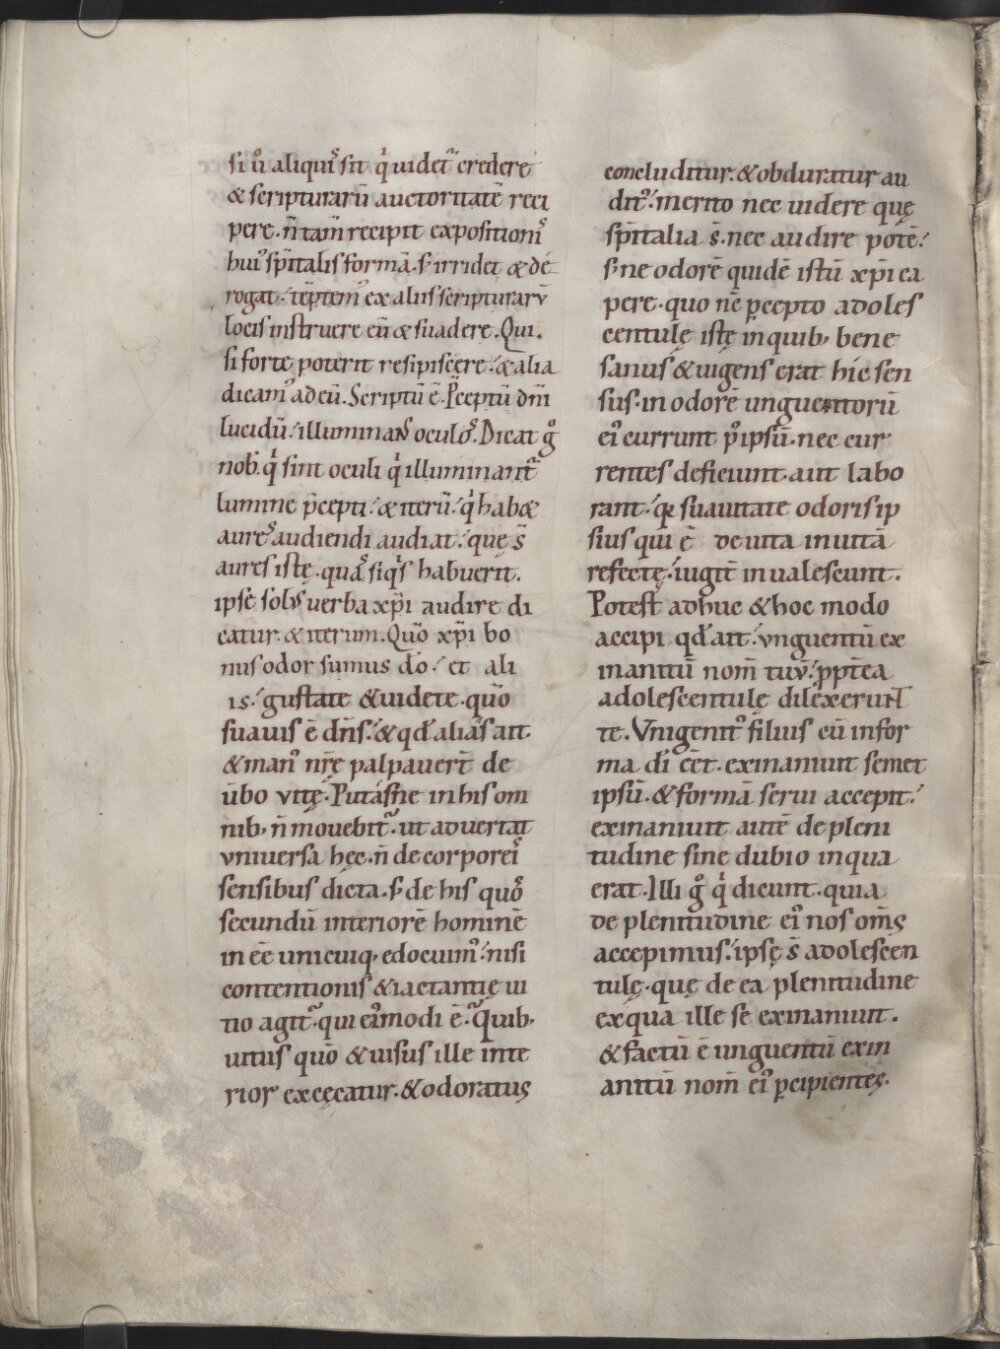 si ů aliquıͣs sit q̇ uidet᷑ credere
& scripturarū auctoritatē reci
pere· n̄ tam̄ recipit expositionıͣ
hui᷒ sp̄italis formā· s; irridet & de
rogat· tēptem᷒ ex aliis scripturarū
locis instruere eū & suadere· Qui·
si forte poterit resipiscere· & alia
dicam᷒ ad eū. Scriptū ē· P̄ceptū dn̄i
lucidū· illuminans oculoͣs. Dicat g̊
nob̄· q̇ sint oculi q̇ illuminant᷑
lumine p̄cepti· & iterū· q̇ habæ
aureͣs audiendi audiat· quę s̄
aures istę· quaͣs siqͥs habuerit·
ipse sol᷒ verba xp̄i audire di
catur· & iterum· Quō xp̄i bo
nus odor sumus dō· et ali
is· gustate & uidete· quō
suauis ē dn̄s· & qd̄ aliaͣs ait·
& man᷒ nr̄ę palpauer̄t de
ūbo vitę· Putasne in his om
nib; n̄ mouebit᷑· ut advertat
vniuersa hęc· n̄ de corporeıͣs
sensibus dicta· s; de his quoͣs
secundū interiorē hominē
in eē unicuiq; edocuim᷒· nisi
contentionis & iactantię ui
tio agit᷑· qui ei᷒modi ē· q᷑ quib;
uitus quō & uisus ille inte
rior excęcatur· & odoratus
concluditur· & obduratur au
dit᷒· merito nec uidere quę
sp̄italia s̄· nec audire potē·
s; ne odorē quidē istū xp̄i ca
pere· quo nc̄ p̱cepto adoles
centulę istę in quib; bene
sanus & uigens erat hic sen
sus· in odorē unguentorū
ei᷒ currunt p᷒ ipsū· nec cur
rentes deficiunt· aut labo
rant· qꝛ suauitate odoris ip
sius qui ē de uita in uitā
refectę· iugit̄ inualescunt·
Potest adhuc & hoc modo
accipi qd̄ ait· vnguentū ex
inanitū nom̄ tuū· ppt̄ea
adolescentulę dilexerunt
te. Vnigenit᷒ filius cū in for
ma dī eēt· exinaniuit semet
ipsū· & formā serui accepit·
exinaniuit autē de pleni
tudine sine dubio in qua
erat· Illi g̊ q̇ dicunt· quia
de plenitudine ei᷒ nos om̄s
accepimus· ipsę s̄ adolescen
tulę· quę de ea plenitudine
ex qua ille se exinaniuit·
& factū ē unguentū exin
anitū nom̄ ei᷒ p̱cipientes·